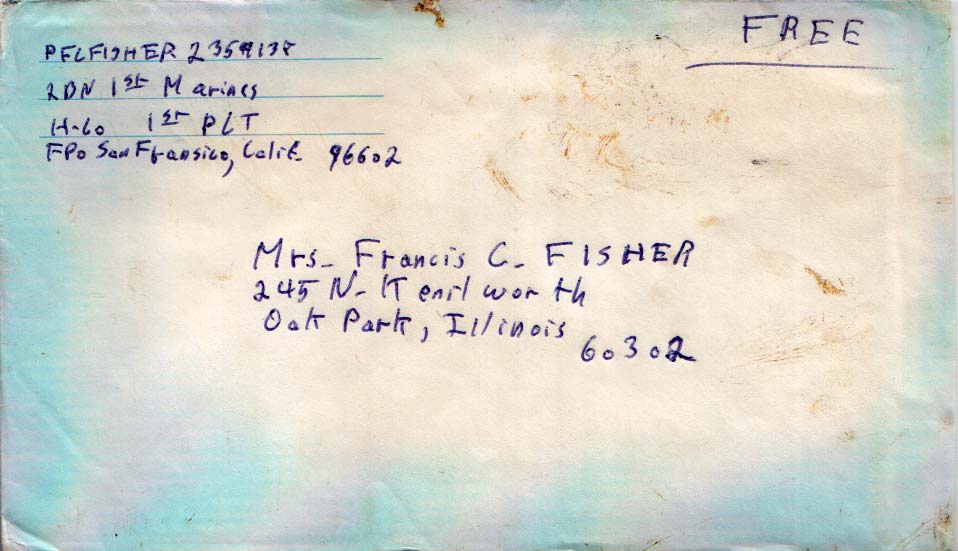 FREE
PFC FISHER 2359137
2BN 1st Marines
H-Co 1st PLT
FPO San Fransico, Calif. 96602
Mrs. Francis C. FISHER
245 N. Kenilworth
Oak Park, Illinois
60302